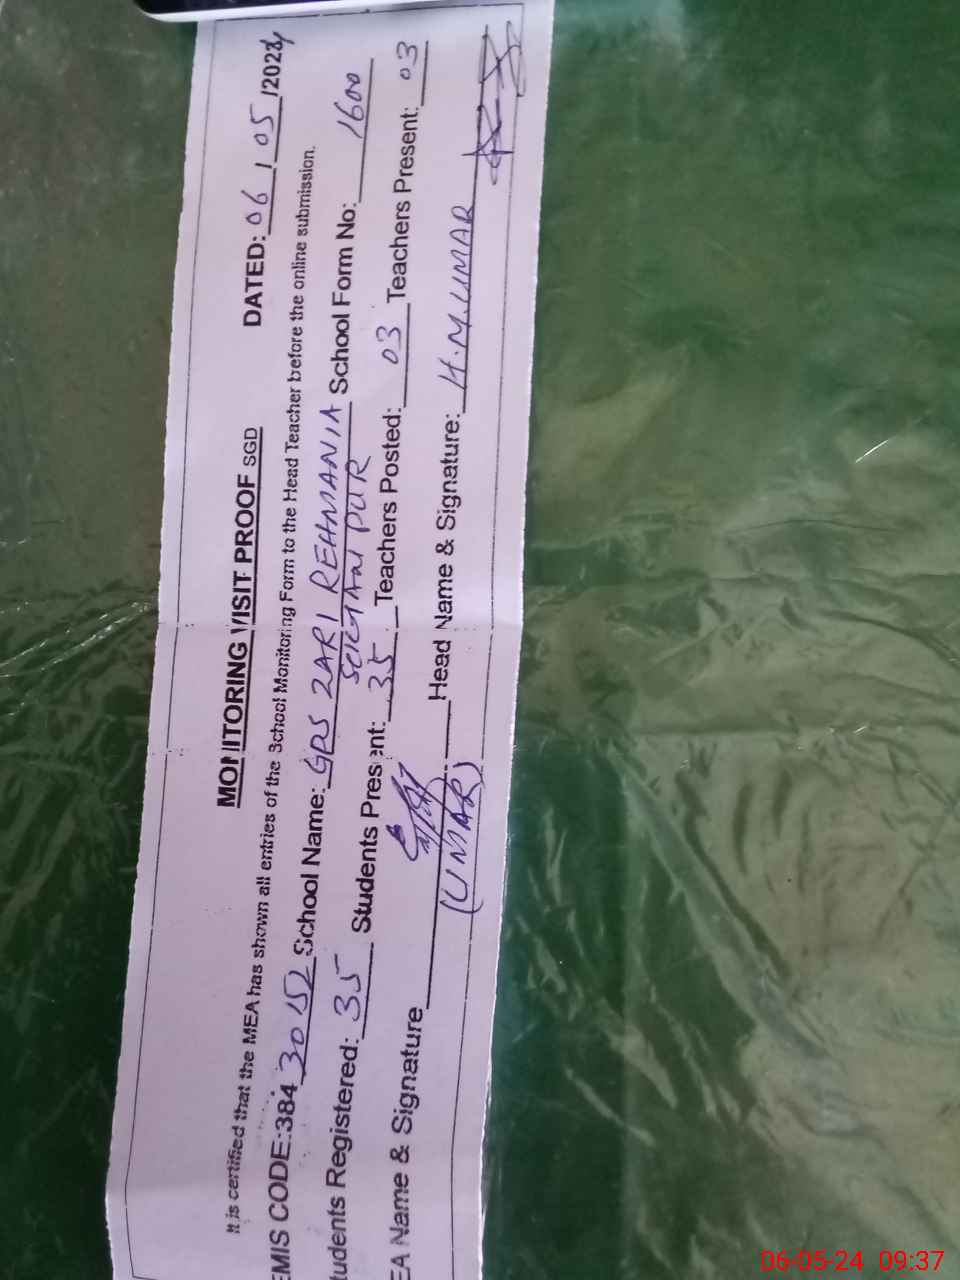 MONITORING VISIT PROOF SGD DATED: 06 / 05 /2024
It is certified that the MEA has shown all entries of the School Monitoring Form to the Head Teacher before the online submission.
EMIS CODE:384 30152 School Name: GPS ZARI REHMANIA School Form No: 1600
SULTAN PUR
tudents Registered: 35 Students Present: 35 Teachers Posted: 03 Teachers Present: 03
EA Name & Signature Head Name & Signature: H.M.UMAR
(UMAR)
06-05-24 09:37